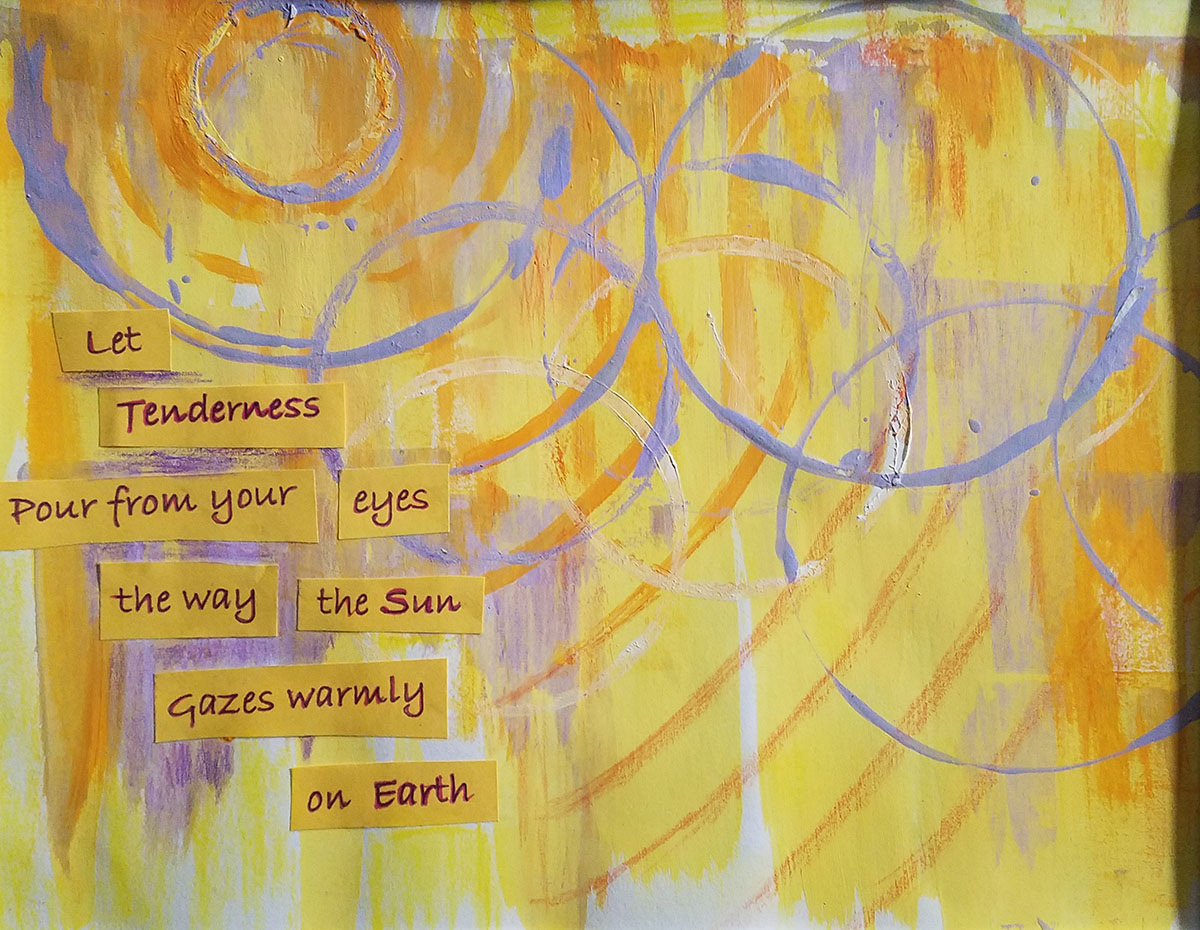 Let
Tenderness
Pour from your eyes
the way the Sun
Gazes warmly
on Earth